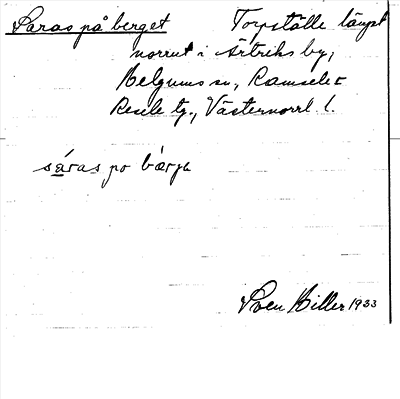 Saras på berget Torpställe längst
norrut i Ärtriks by,
Helgums sn., Ramsele o
Resele tg., Västernorrl. l.
sáras po bárjɐ
Sven Hiller 1933